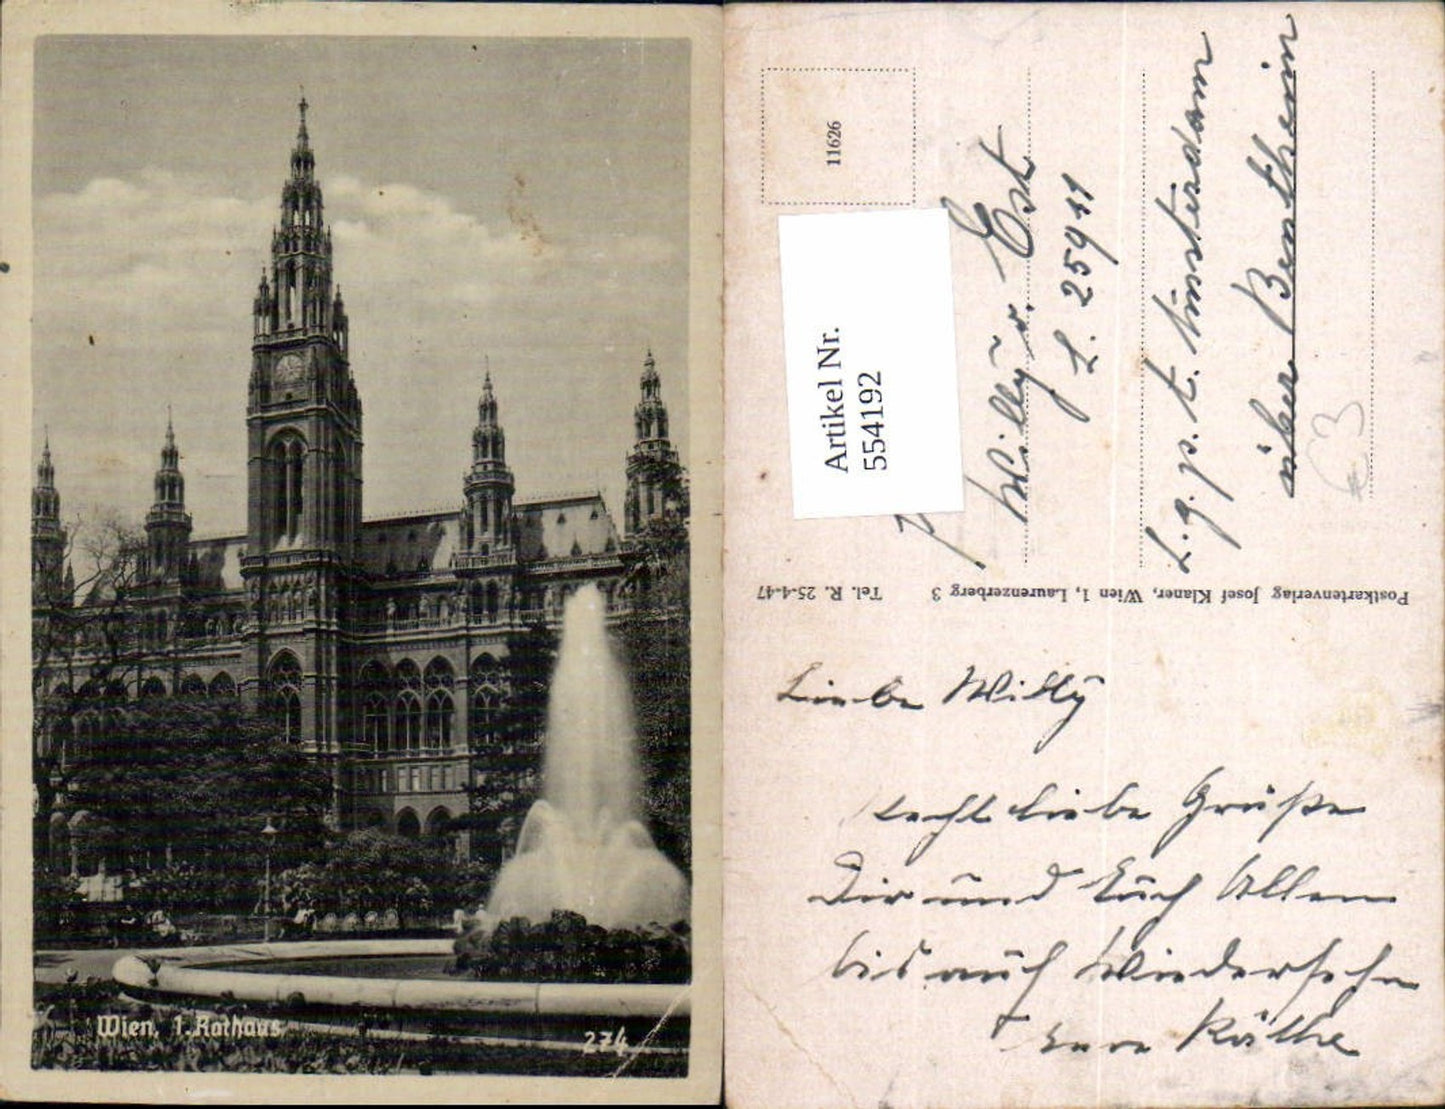 Wien, 1. Rathaus
274
11626
Artikel Nr.
554192
Willy v. Est
L. 25911
L. g. p. t. Amsterdam
über Bentheim
€ 3
Postkartenverlag Josef Klaner, Wien 1, Laurenzerberg 3 Tel. R. 25-4-47
Liebe Willy
Recht liebe Grüße
Dir und Euch Allen
bis auf Wiedersehn
Eure Käthe